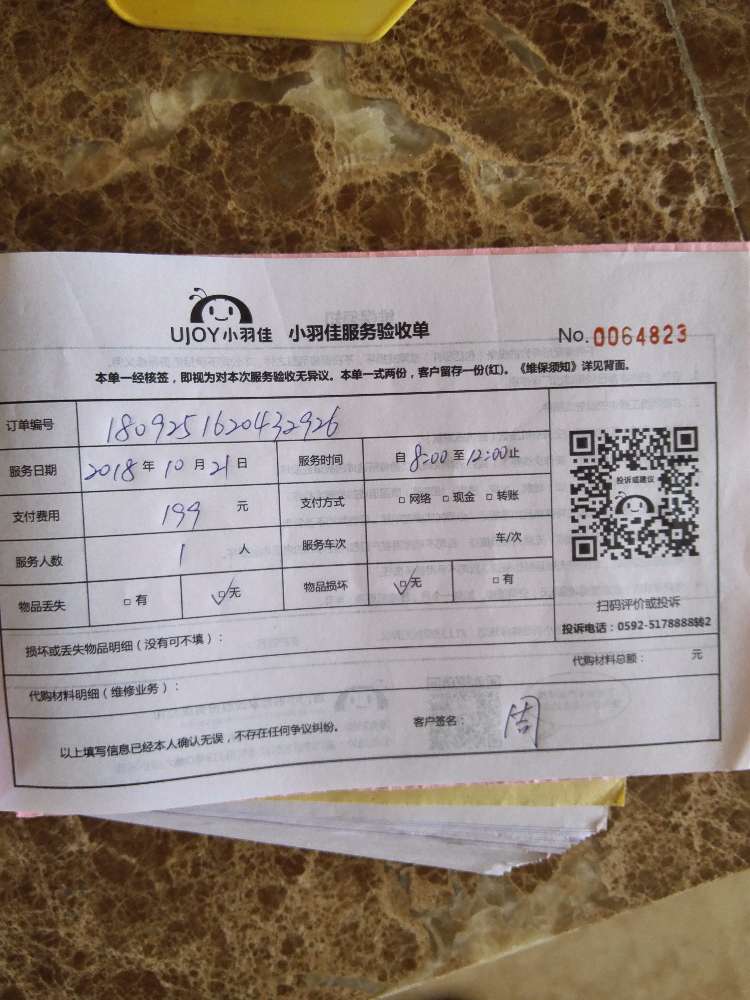 UJOY小羽佳 小羽佳服务验收单 No.0064823
本单一经核签，即视为对本次服务验收无异议。本单一式两份，客户留存一份(红)。《维保须知》详见背面。
订单编号 1809251620432926
服务日期 2018年10月21日 服务时间 自8:00至12:00止
支付费用 199元 支付方式 □网络 □现金 □转账
服务人数 1人 服务车次 车/次
物品丢失 □有 ☑无 物品损坏 ☑无 □有
投诉或建议
扫码评价或投诉
投诉电话：0592-5178888转2
损坏或丢失物品明细（没有可不填）：
代购材料明细（维修业务）： 代购材料总额： 元
以上填写信息已经本人确认无误，不存在任何争议纠纷。 客户签名： 周